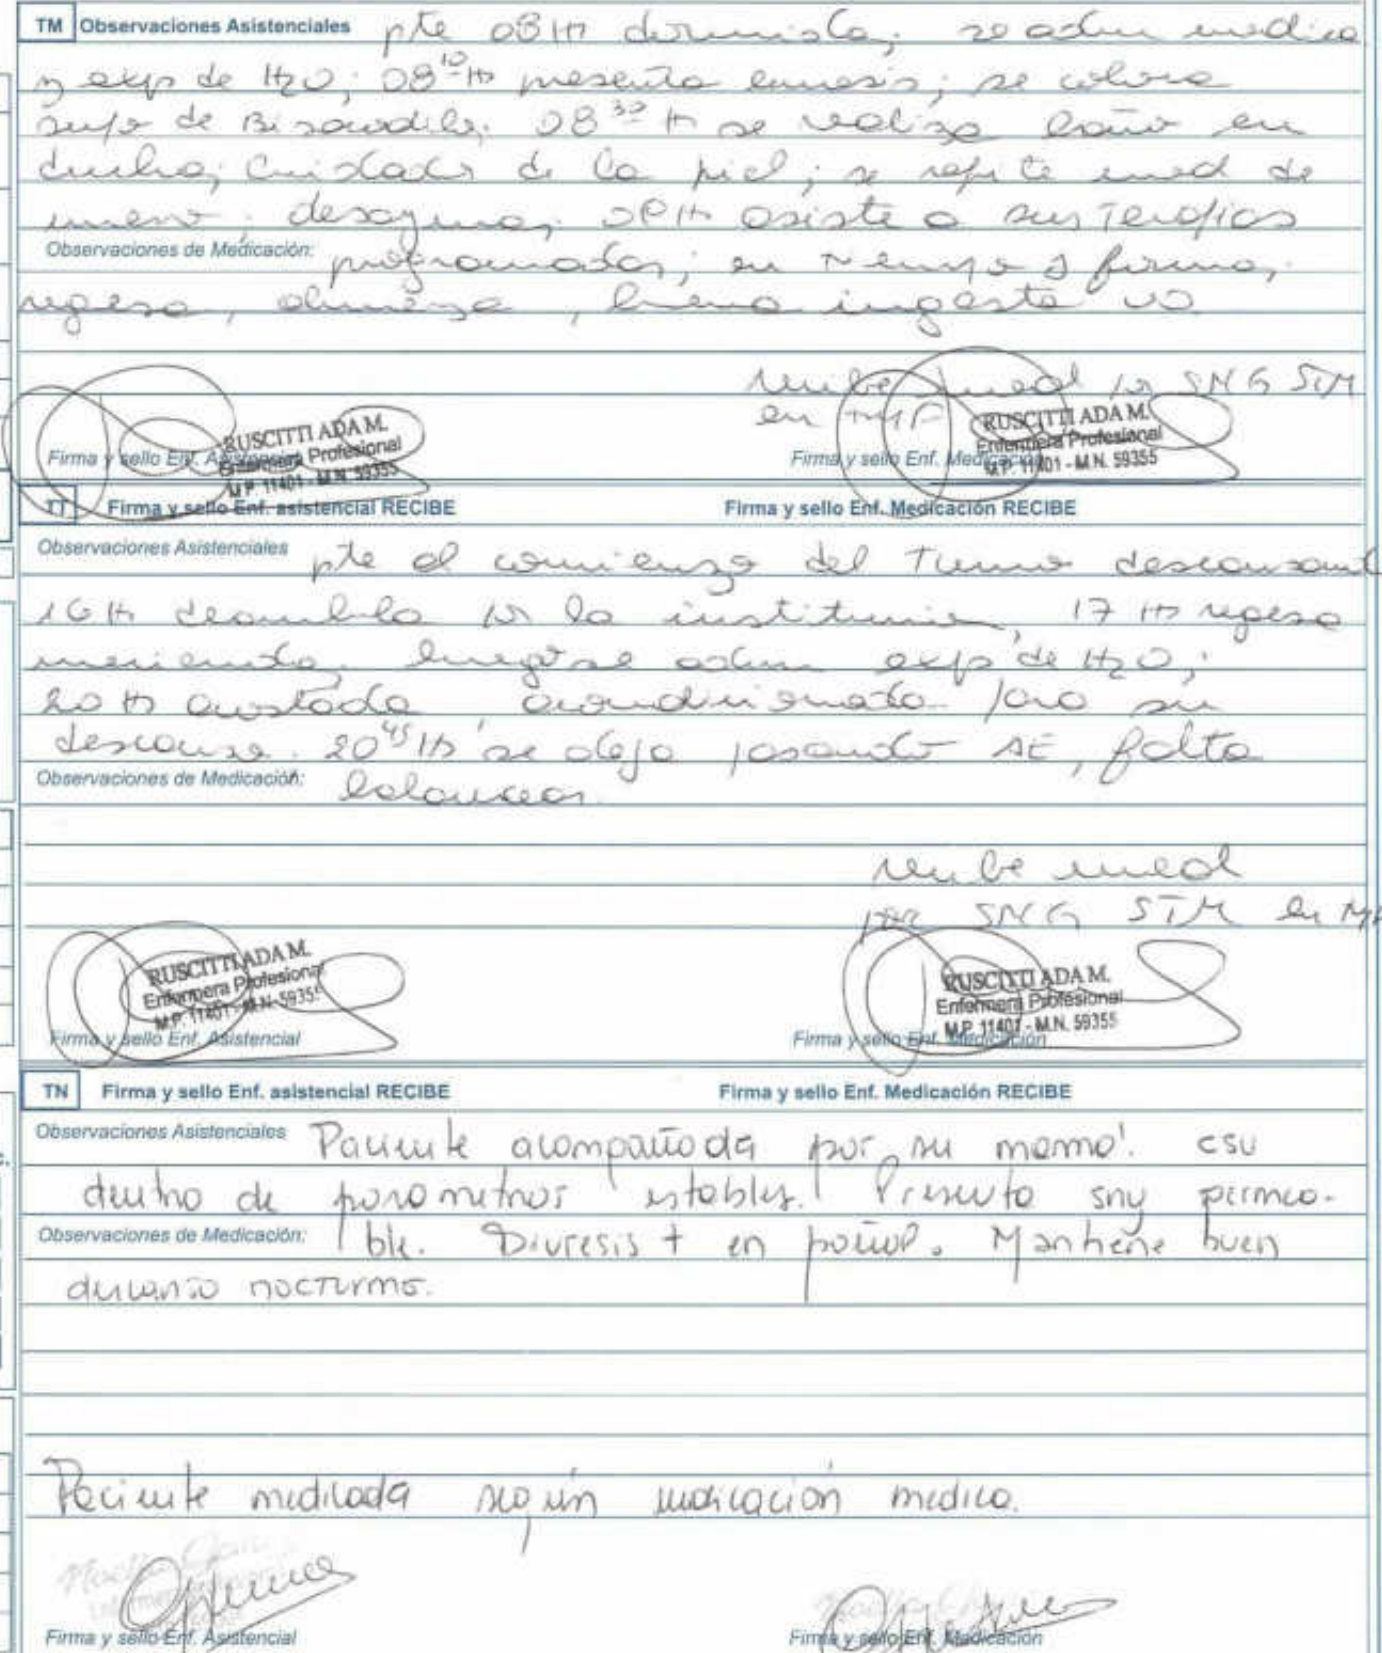 TM Observaciones Asistenciales pte 08 Hs dormida; se adm medica
y exp de H2O; 08 10 Hs presenta emesis; se coloca
supo de Bisacodilo. 08 30 H se realiza baño en
ducha; cuidados de la piel; se repite med de
nuevo; desayuna; Hs asiste a sus terapias
Observaciones de Medicación: programadas; en tiempo y forma,
regresa, almuerza, buena ingesta VO
recibe med por SNG STM
en TMF
RUSCITTI ADA M.
Enfermera Profesional
M.P. 11401 - M.N. 59355
Firma y sello Enf. Asistencial
RUSCITTI ADA M.
Enfermera Profesional
M.P. 11401 - M.N. 59355
Firma y sello Enf. Medicación
TT Firma y sello Enf. asistencial RECIBE Firma y sello Enf. Medicación RECIBE
Observaciones Asistenciales pte al comienzo del Turno descansand
16 Hs deambula por la institucion, 17 Hs regresa
merienda, luego se adm exp de H2O;
20 Hs acostada, acondicionada para su
descanso. 20 45 Hs se deja pasando AE, falta
Observaciones de Medicación: balancear.
recibe med
por SNG STM en
RUSCITTI ADA M.
Enfermera Profesional
M.P. 11401 - M.N. 59355
Firma y sello Enf. Asistencial
RUSCITTI ADA M.
Enfermera Profesional
M.P. 11401 - M.N. 59355
Firma y sello Enf. Medicación
TN Firma y sello Enf. asistencial RECIBE Firma y sello Enf. Medicación RECIBE
Observaciones Asistenciales Paciente acompañada por su mamá. CSV
dentro de parametros estables. Presenta sng permea-
Observaciones de Medicación: ble. Diuresis + en pañal. Mantiene buen
descanso nocturno.
Paciente medicada según indicación medica.
Firma y sello Enf. Asistencial
Firma y sello Enf. Medicación